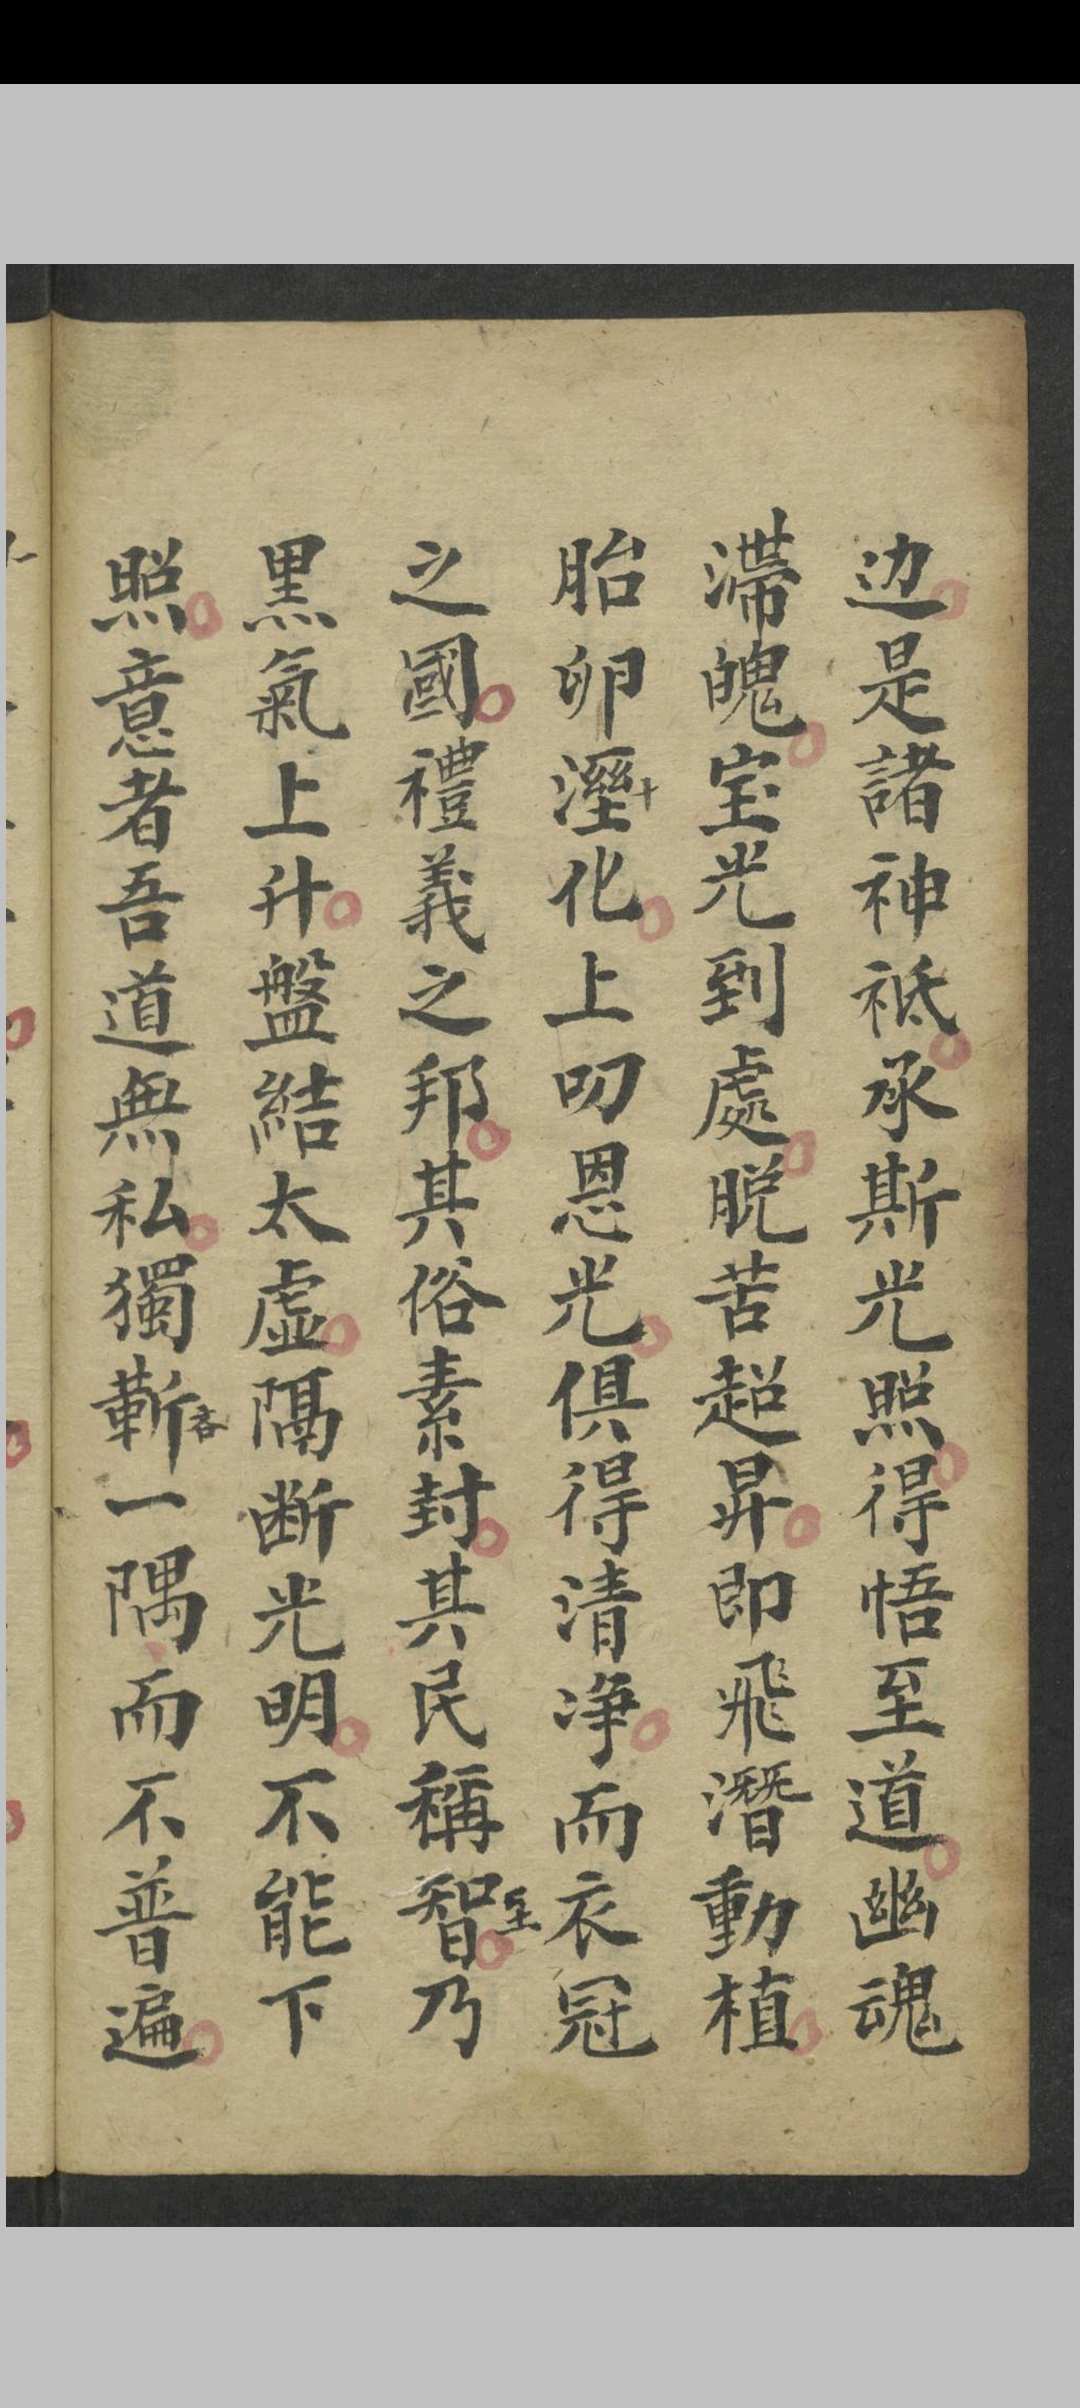 边是諸神祗承斯光照得悟至道幽魂
滯魄宝光到處脱苦超昇即飛潛動植
胎卵溼化上叨恩光俱得清净而衣冠
之國禮義之邦其俗素封其民稱智至乃
黑氣上升盤結太虚隔断光明不能下
照意者吾道無私獨蘄吝一隅而不普遍